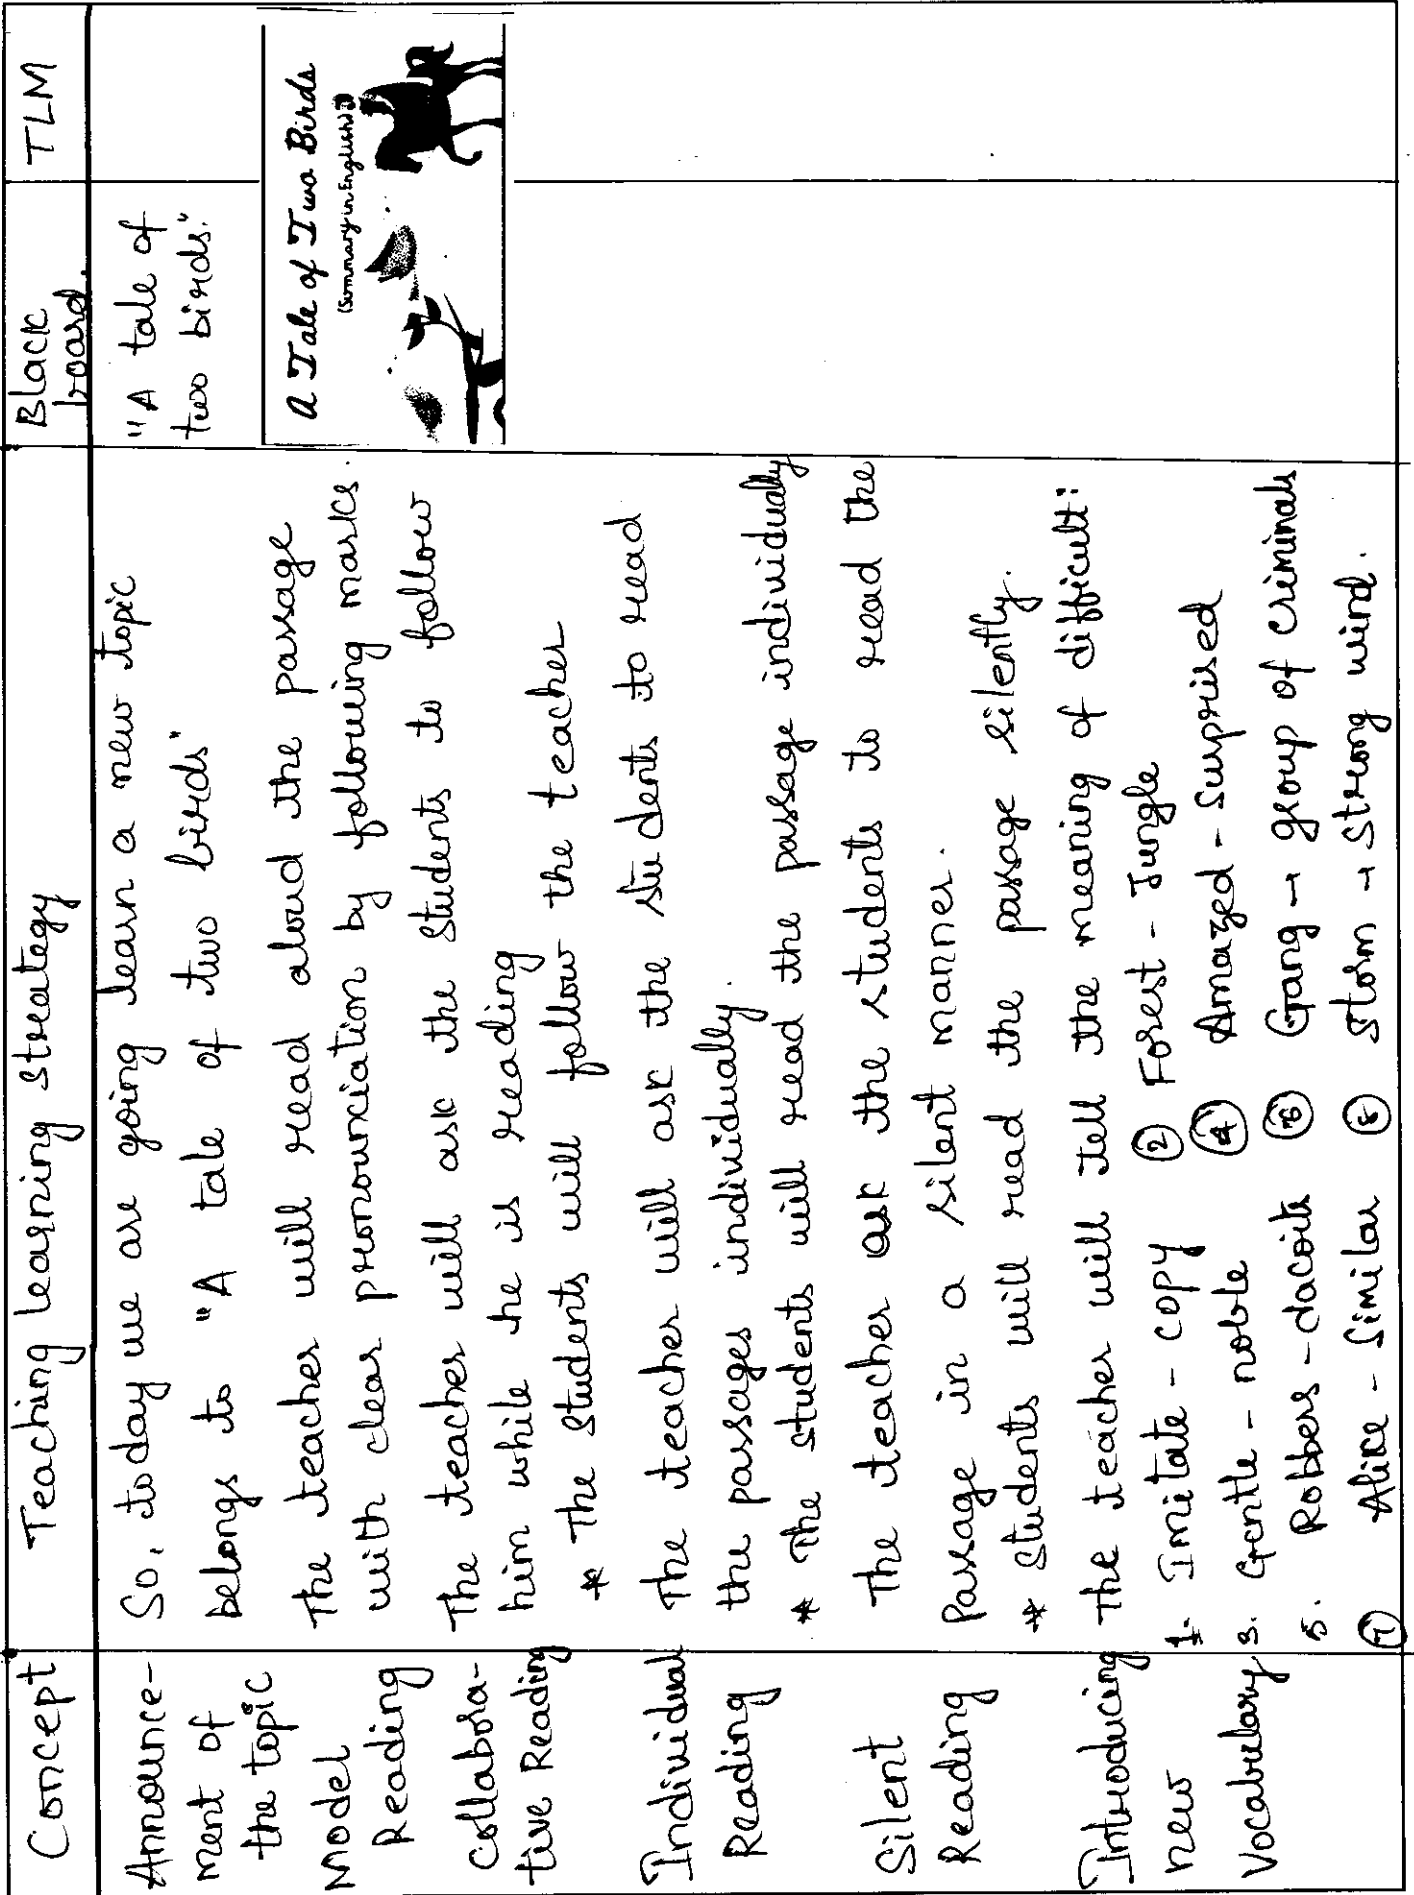 Concept
Teaching learning Strategy
Black board.
TLM
Announce-
ment of
the topic
So, today we are going learn a new topic
belongs to "A tale of two birds"
"A tale of
two birds."
Model
Reading
The teacher will read aloud the passage
with clear pronounciation by following marks.
A Tale of Two Birds
(Summary in English)
Collabora-
tive Reading
The teacher will ask the students to follow
him while he is reading
* The students will follow the teacher
Individual
Reading
The teacher will ask the students to read
the passages individually.
* The students will read the passage individually
Silent
Reading
The teacher ask the students to read the
Passage in a silent manner.
* Students will read the passage silently.
Introducing
new
Vocabulary
The teacher will tell the meaning of difficult:
1. Imitate - copy ② Forest - Jungle
3. Gentle - noble ④ Amazed - Surprised
5. Robbers - dacoits ⑥ Gang → group of criminals
⑦ Alike - Similar ⑧ Storm → Strong wind.